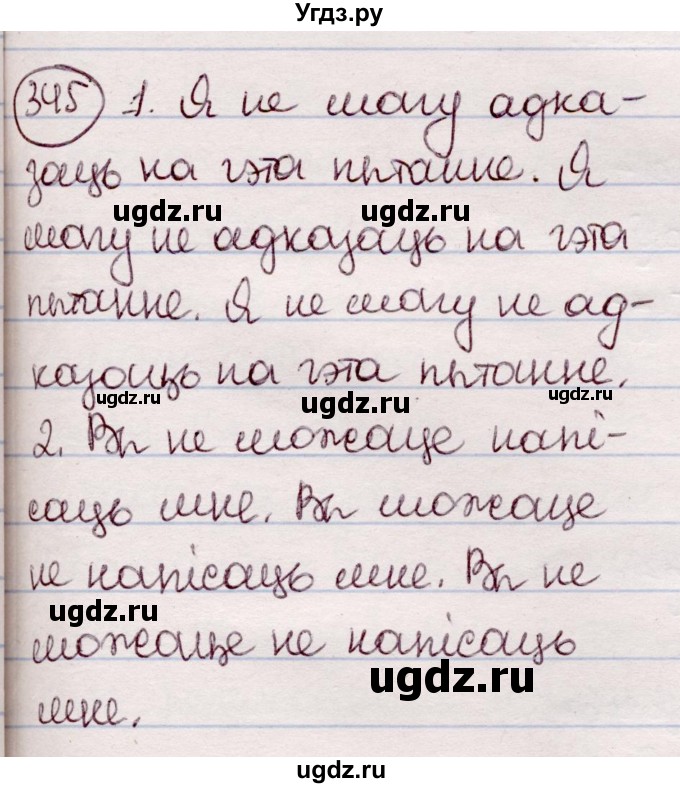 Угдз.ру
345 1. Я не магу адка-
заць на гэта пытанне. Я
ugdz.ru ugdz.ru
магу не адказаць на гэта
пытанне. Я не магу не ад-
казаць на гэта пытанне.
ugdz.ru ugdz.ru ugdz.ru
2. Вы не можаце напі-
саць мне. Вы можаце
не напісаць мне. Вы не
ugdz.ru
можаце не напісаць
ugdz.ru
мне.
ugdz.ru